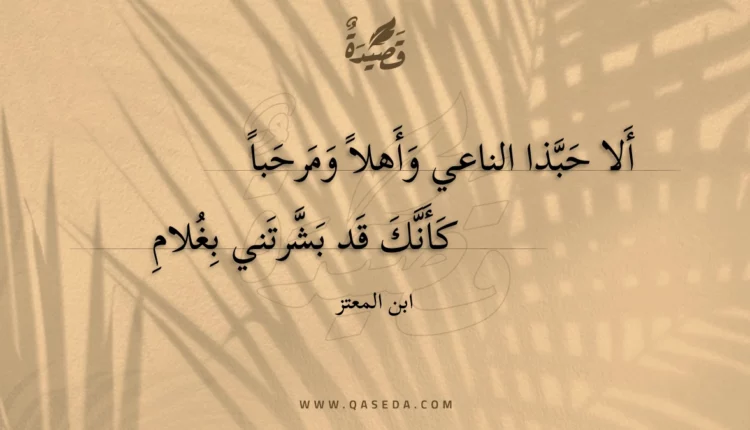 قَصِيْدَةٌ
أَلا حَبَّذا الناعي وَأَهلاً وَمَرحَباً
كَأَنَّكَ قَد بَشَّرتَني بِغُلامِ
ابن المعتز
WWW.QASEDA.COM